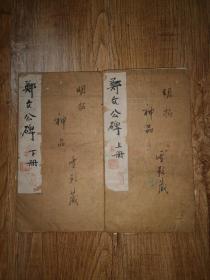 鄭文公碑 上册
明拓
神品
藏
鄭文公碑 下册
明拓
神品
藏